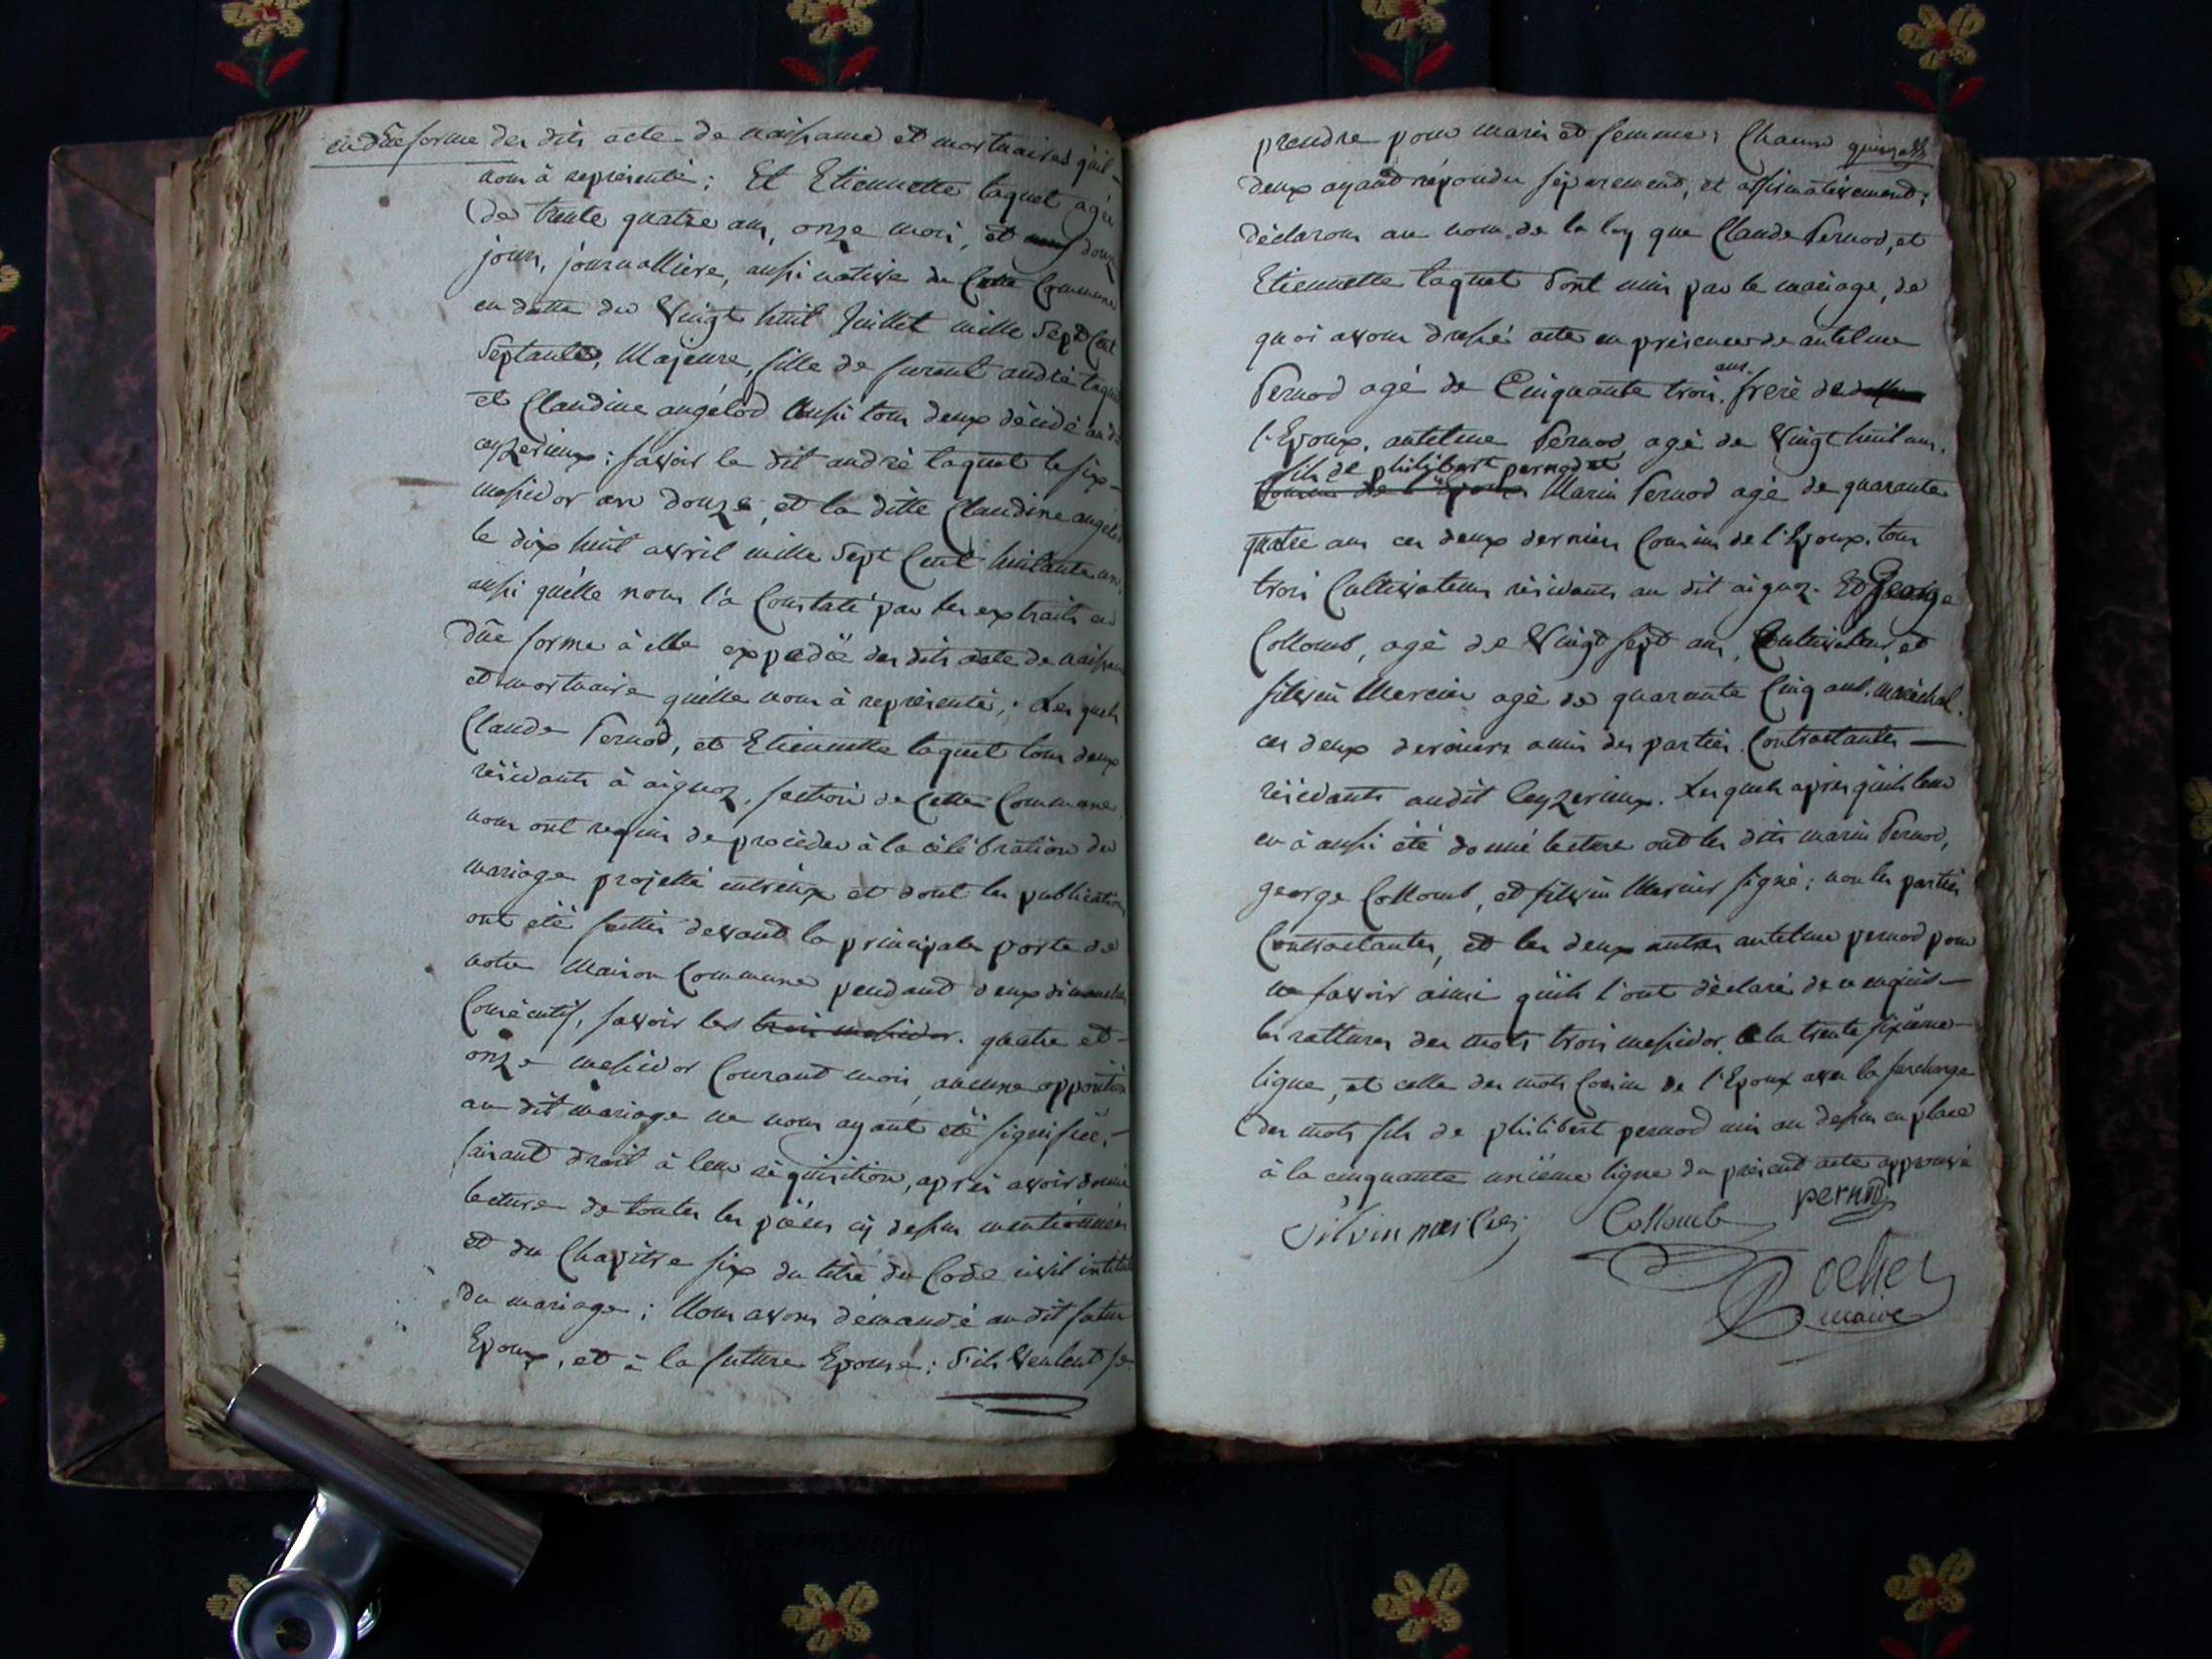 en düe forme des dits acte de naissance et mortuaires qu'il
nous à représenté; Et Etiennette taquet agée
de trente quatre ans, onze mois, et douze
jours, journalliere, aussi native de Cette Commune
en datte du Vingt huit Juillet mille Sept Cent
Septante, Majeure, fille de furent andré taquet
et Claudine angélod aussi tous deux décédé au dit
ceyzerieux; savoir le dit andré taquet le six
messidor an douze, et la ditte Claudine angelod
le dix huit avril mille Sept Cent huitante un,
aussi qu'elle nous l'a Constaté par les extraits en
düe forme à elle expedié des dits acte de naissance
et mortuaire qu'elle nous à représenté; Les quels
Claude Pernod, et Etiennette taquet tous deux
résidants à aignoz, section de Cette Commune
nous ont requis de procéder à la célébration du
mariage projetté entr'eux et dont les publications
ont été faittes devant la principale porte de
notre Maison Commune pendant deux dimanches
Consécutifs, savoir les trois messidor. quatre et
onze messidor Courant mois, aucune opposition
au dit mariage ne nous ayant été signifiée,
faisant droit à leur réquisition, après avoir donné
lecture de toutes les pièces cy dessus mentionnées
et du Chapitre six du titre du Code civil intitulé
du mariage; Nous avons démandé au dit futur
Epoux, et à la future Epouse; S'ils Veulent se
prendre pour maris et femme; Chacun
deux ayant répondu séparement, et affirmativement;
déclarons au nom de la loy que Claude Pernod, et
Etiennette taquet Sont unis par le mariage, de
quoi avons dressé acte en présence de antelme
Pernod agé de Cinquante trois ans. frere de
l'Epoux. antelme Pernod agé de Vingt huit ans.
fils de philibert pernod et
Cousin de l'Epoux Marin Pernod agé de quarante
quatre ans ces deux derniers Cousins de l'Epoux. tous
trois Cultivateurs résidants au dit aignoz. Et George
Collomb, agé de Vingt sept ans, Cultivateur, et
silvin Mercier agé de quarante Cinq ans. maréchal.
ces deux derniers amis des parties Contractantes
résidants audit Ceyzerieux. Lesquels après qu'il leur
en à aussi été donné lecture ont les dits marin Pernod,
george Collomb, et silvin Mercier signé; non les parties
Contractantes, et les deux autres antelme pernod pour
ne savoir ainsi qu'ils l'ont déclaré de ce enquis
les rattures des mots trois messidor à la trente sixième
ligne, et celle des mots Cousin de l'Epoux avec la surcharge
des mots fils de philibert pernod mis au dessus en place
à la cinquante unième ligne du présent acte approuvé
pernod
Silvin mercier Collomb
maire